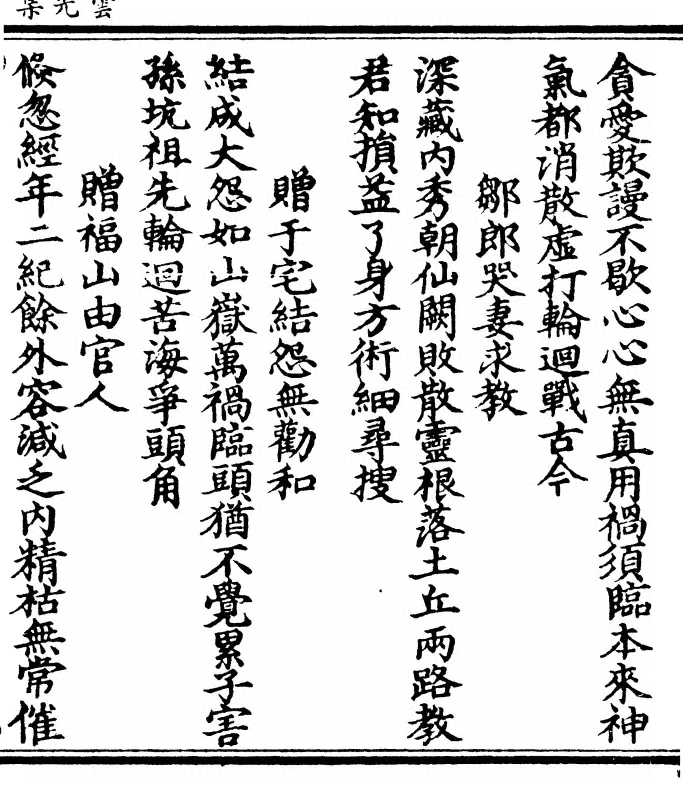 雲光集
貪愛欺謾不歇心心無真用禍須臨本來神
氣都消散虛打輪迴戰古今
鄒郎哭妻求教
深藏內秀朝仙闕敗散靈根落土丘兩路教
君知損益了身方術細尋搜
贈于宅結怨無勸和
結成大怨如山嶽萬禍臨頭猶不覺累子害
孫坑祖先輪迴苦海爭頭角
贈福山由官人
倐忽經年二紀餘外容減乏內精枯無常催